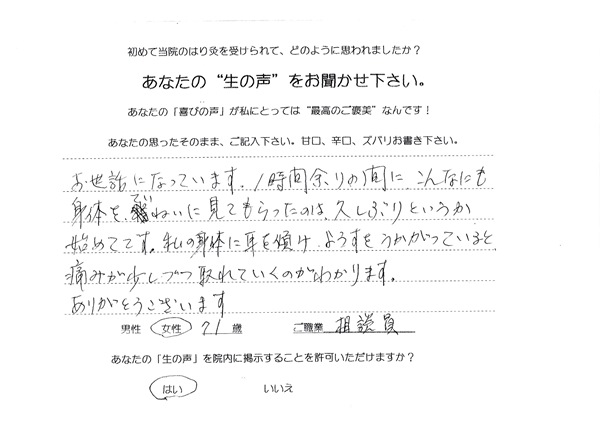 初めて当院のはり灸を受けられて、どのように思われましたか？
あなたの“生の声”をお聞かせ下さい。
あなたの「喜びの声」が私にとっては“最高のご褒美”なんです！
あなたの思ったそのまま、ご記入下さい。甘口、辛口、ズバリお書き下さい。
お世話になっています。1時間余りの間に こんなにも
身体を ていねいに見てもらったのは、久しぶりというか
始めてです。私の身体に耳を傾け ようすをうかがっていると
痛みが少しづつ取れていくのがわかります。
ありがとうございます
男性 女性 71 歳 ご職業 相談員
あなたの「生の声」を院内に掲示することを許可いただけますか？
はい いいえ